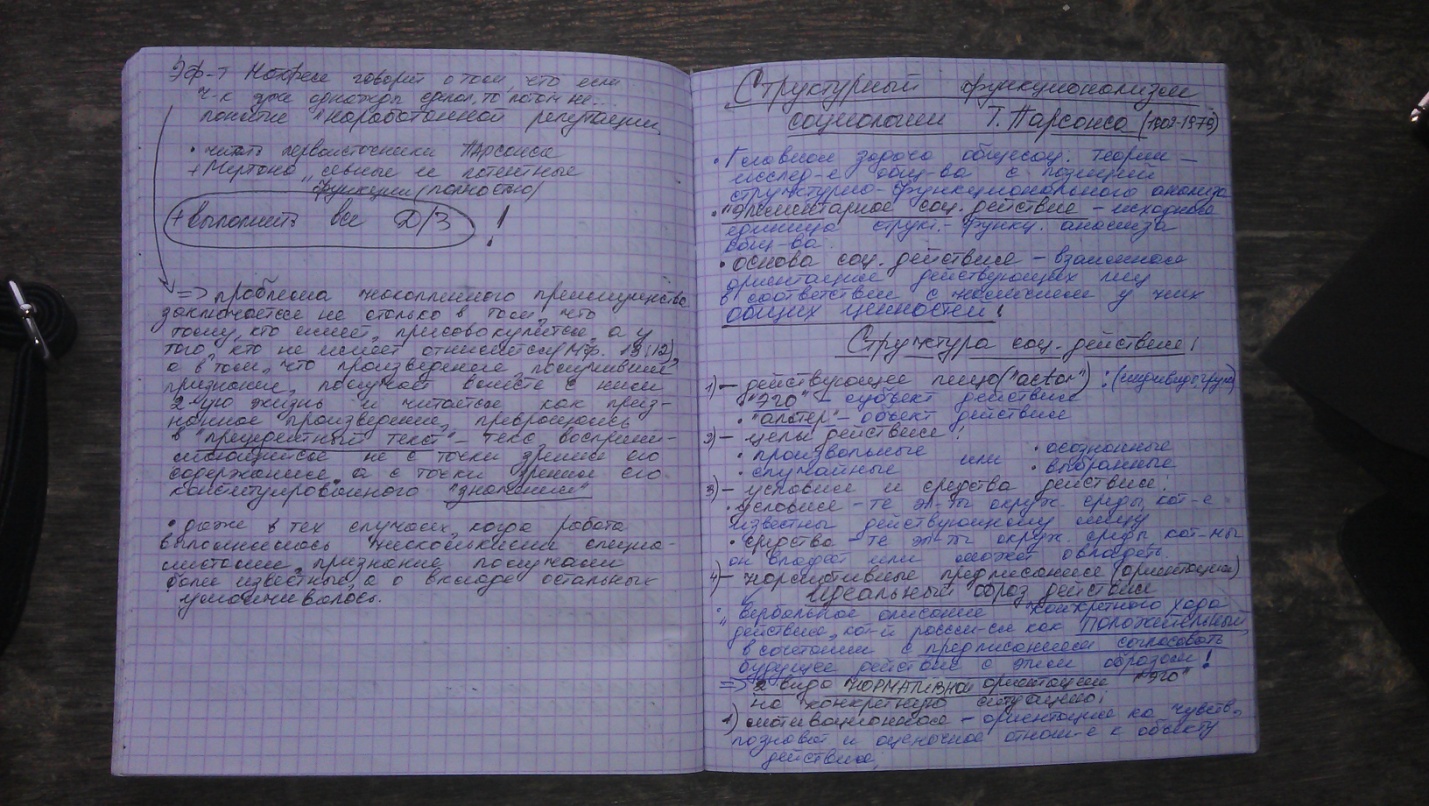 Эф-т Матфея говорит о том, что если
ч-к уже однажды сделал, то потом не...
понятие "наработанной репутации
• читать первоисточники Парсонса
+ Мертона „явные и латентные
функции (полностью)
+ выполнить все Д/З !
=> проблема накопленного преимущества
заключается не столько в том, что
тому, кто имеет, присовокупится, а у
того, кто не имеет отнимется (Мф. 13:12)
а в том, что произведение, получившее
признание, получает вместе с ним
2-ую жизнь и читается как приз-
нанное произведение, превращаясь
в "прецедентный текст" – текс восприни-
мающийся не с точки зрения его
содержания, а с точки зрения его
конституированного "значения"
• даже в тех случаях, когда работа
выполнялась несколькими специа-
листами, признание получали
более известные, а о вкладе остальных
умалчивалось.
Структурный функционализм
социологии Т. Парсонса (1902-1979)
• Главная задача общесоц. теории –
исслед-е общ-ва с позиции
структурно-функционального анализа
• "элементарное соц. действие – исходная
единица структ.-функц. анализа
общ-ва.
• основа соц. действия – взаимная
ориентация действующих лиц
в соответствии с наличием у них
общих ценностей!
Структура соц. действия:
1) – действующее лицо ("actor") : (индивид, группа)
• "эго" – субъект действия
• "альтер" – объект действия
2) – цели действия:
• произвольные или • осознанные
• случайные • выбранные
3) – условия и средства действия:
• условия – те эл-ты окруж. среды, кот-е
известны действующему лицу
• средства – те эл-ты окруж. среды, кот-ми
он владеет или может овладеть.
4) – нормативные предписания (ориентации)
идеальный образ действия
„вербальное описание конкретного хода
действия, кот-й рассм-ся как ПОЛОЖИТЕЛЬНЫЙ
в сочетании с предписанием согласовать
будущее действие с этим образом!
=> 2 вида НОРМАТИВНОЙ ориентации "эго"
на конкретную ситуацию:
1) мотивационная – ориентация на чувств.,
познават и оценочное отнош-е к объекту
действия,